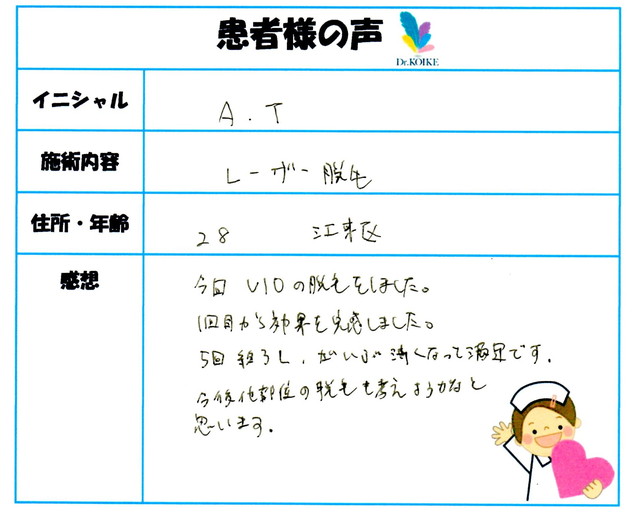 患者様の声
Dr.KOIKE
イニシャル
A.T
施術内容
レーザー脱毛
住所・年齢
28 江東区
感想
今回VIOの脱毛をしました。
1回目から効果を実感しました。
5回終了し、だいぶ薄くなって満足です。
今後他部位の脱毛も考えようかなと
思います。